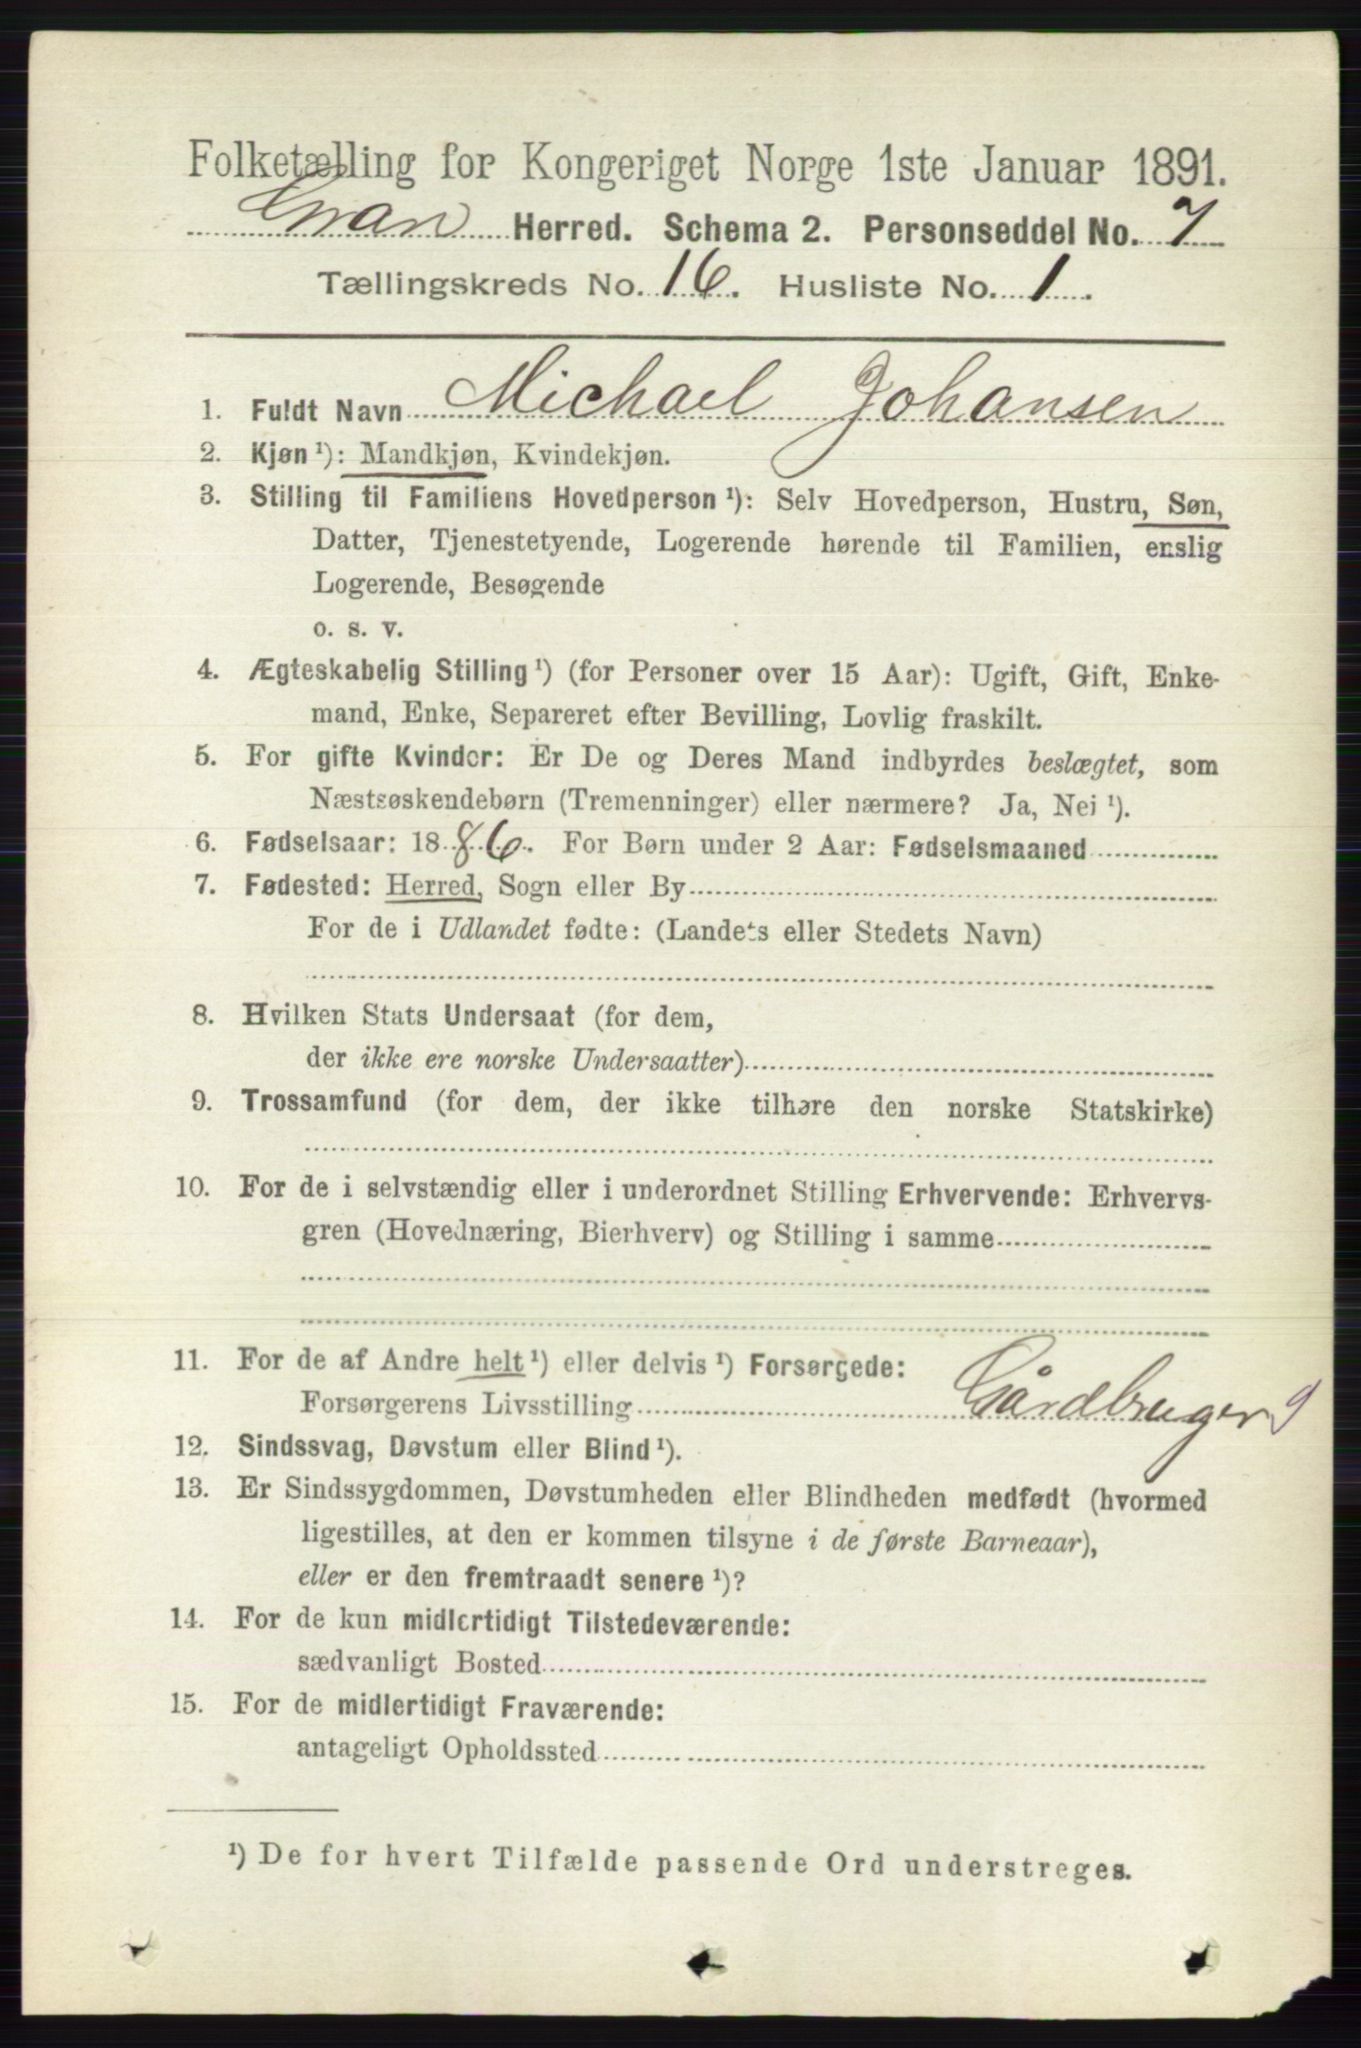 Folketælling for Kongeriget Norge 1ste Januar 1891.
Gran Herred. Schema 2. Personseddel No. 7
Tællingskreds No. 16. Husliste No. 1.
1. Fuldt Navn Michael Johansen
2. Kjøn ¹): Mandkjøn, Kvindekjøn.
3. Stilling til Familiens Hovedperson ¹): Selv Hovedperson, Hustru, Søn,
Datter, Tjenestetyende, Logerende hørende til Familien, enslig
Logerende, Besøgende
o. s. v.
4. Ægteskabelig Stilling ¹) (for Personer over 15 Aar): Ugift, Gift, Enke-
mand, Enke, Separeret efter Bevilling, Lovlig fraskilt.
5. For gifte Kvinder: Er De og Deres Mand indbyrdes beslægtet, som
Næstsøskendebørn (Tremenninger) eller nærmere? Ja, Nei ¹).
6. Fødselsaar: 1886. For Børn under 2 Aar: Fødselsmaaned
7. Fødested: Herred, Sogn eller By
For de i Udlandet fødte: (Landets eller Stedets Navn)
8. Hvilken Stats Undersaat (for dem,
der ikke ere norske Undersaatter)
9. Trossamfund (for dem, der ikke tilhøre den norske Statskirke)
10. For de i selvstændig eller i underordnet Stilling Erhvervende: Erhvervs-
gren (Hovednæring, Bierhverv) og Stilling i samme
11. For de af Andre helt ¹) eller delvis ¹) Forsørgede:
Forsørgerens Livsstilling Gårdbruger 9
12. Sindssvag, Døvstum eller Blind ¹).
13. Er Sindssygdommen, Døvstumheden eller Blindheden medfødt (hvormed
ligestilles, at den er kommen tilsyne i de første Barneaar),
eller er den fremtraadt senere ¹)?
14. For de kun midlertidigt Tilstedeværende:
sædvanligt Bosted
15. For de midlertidigt Fraværende:
antageligt Opholdssted
¹) De for hvert Tilfælde passende Ord understreges.